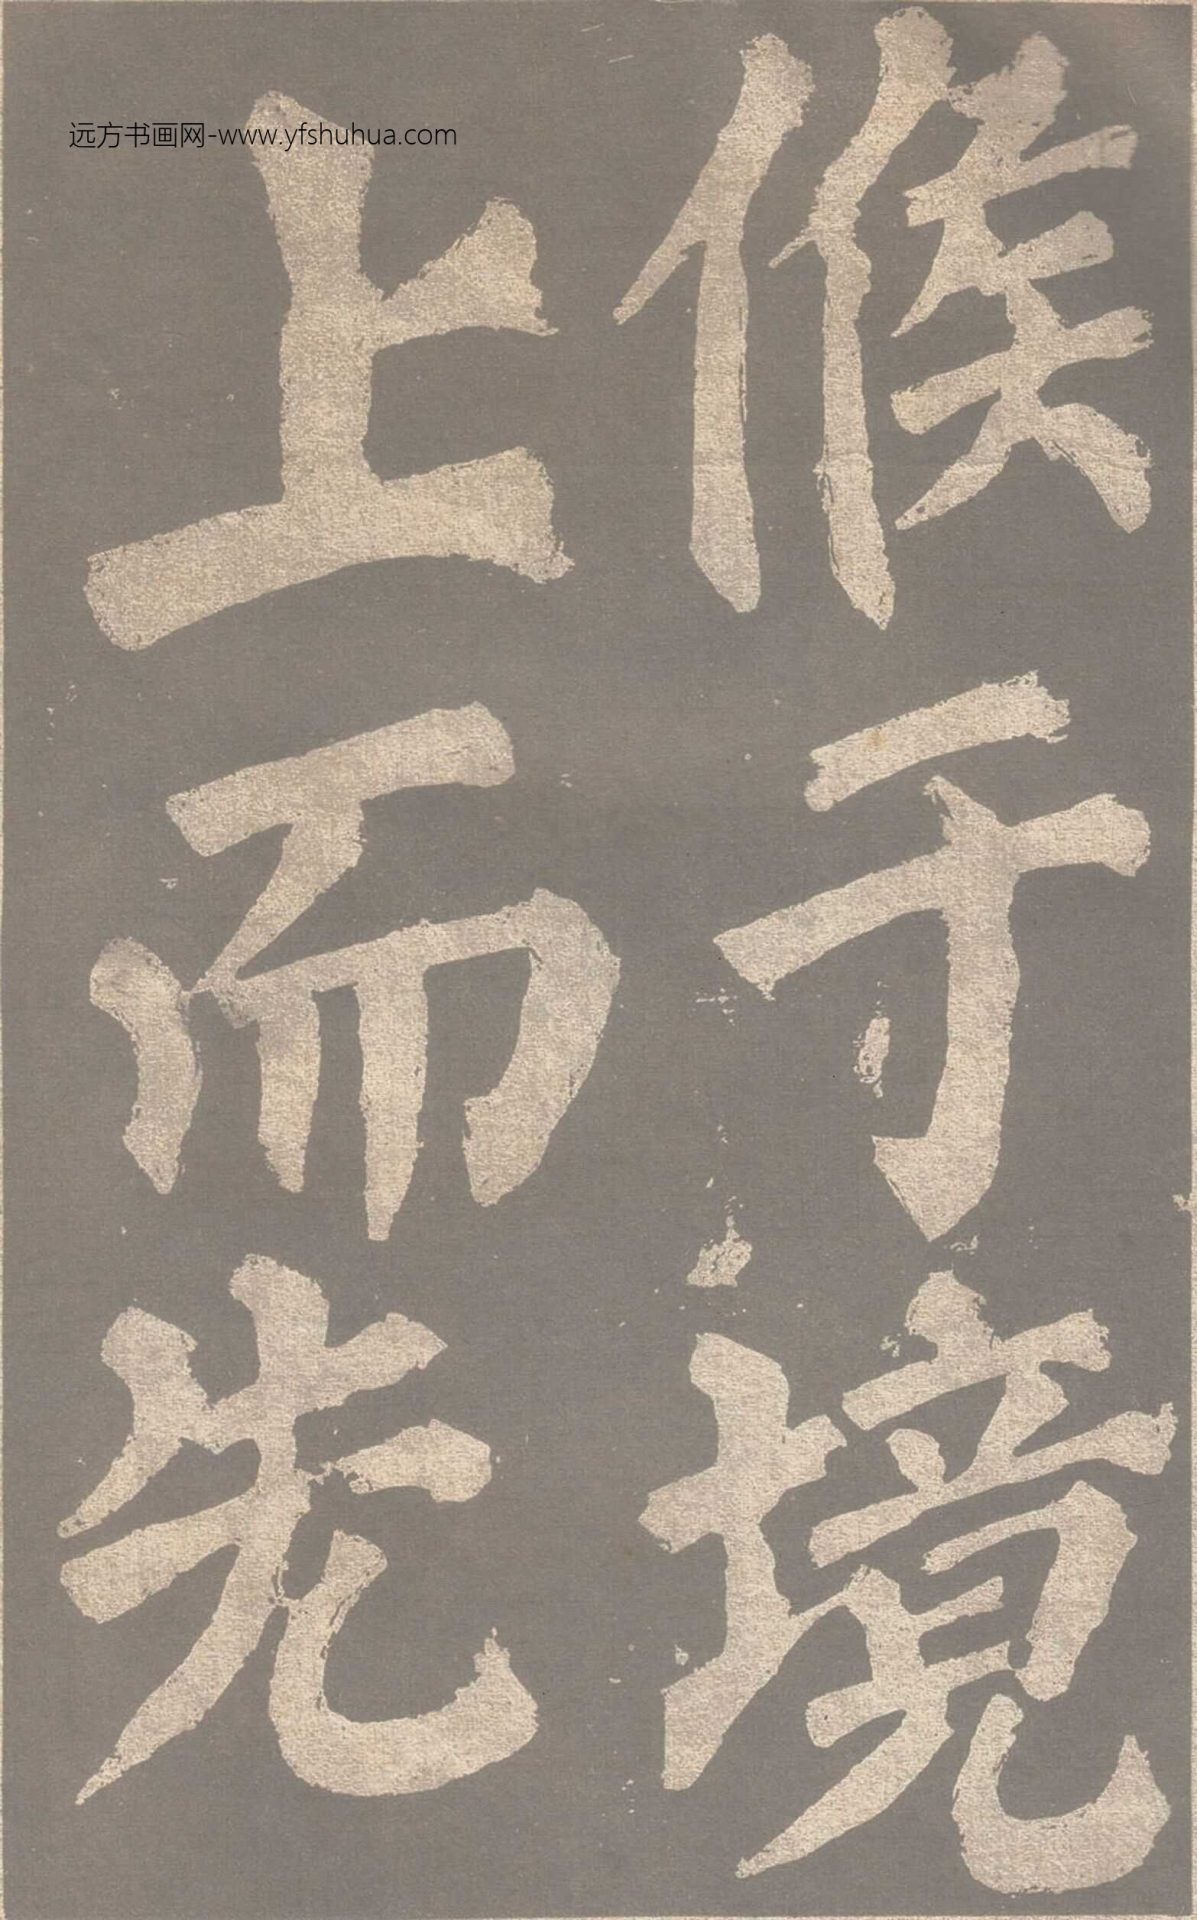 候于境
上而先
远方书画网-www.yfshuhua.com